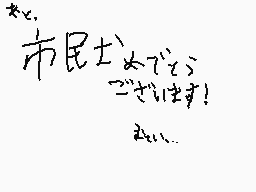 あと、
市民おめでとう
ございます!